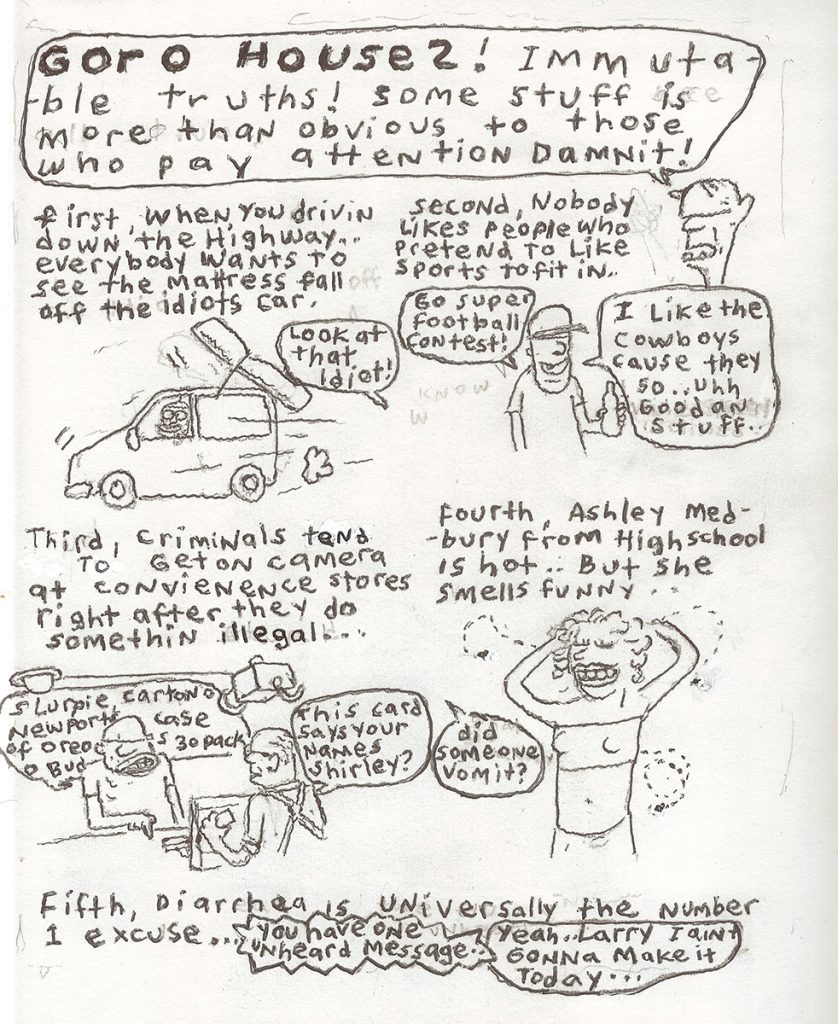 GORO HOUSE 2! Immuta-
-ble truths! some stuff is
more than obvious to those
who pay attention Damnit!
first, when, you drivin
down, the Highway...
everybody wants to
see the Mattress fall
off the idiots car.
second, Nobody
Likes people who
pretend to Like
sports to fit in..
Look at
that
Idiot!
Go super
football
contest!
I Like the
cowboys
cause they
so..uhh
Good an
stuff..
Third, criminals tend
to Get on camera
at convienence stores
right after they do
somethin illegal...
Fourth, Ashley Med-
-bury from Highschool
is hot... But she
smells funny...
slurpie carton o
Newports case
of oreo s 30 pack
o Bud
this card
says your
names
shirley?
did
someone
vomit?
Fifth, Diarrhea is universally the number
1 excuse...
you have one
unheard message..
yeah..Larry I aint
Gonna Make it
Today...